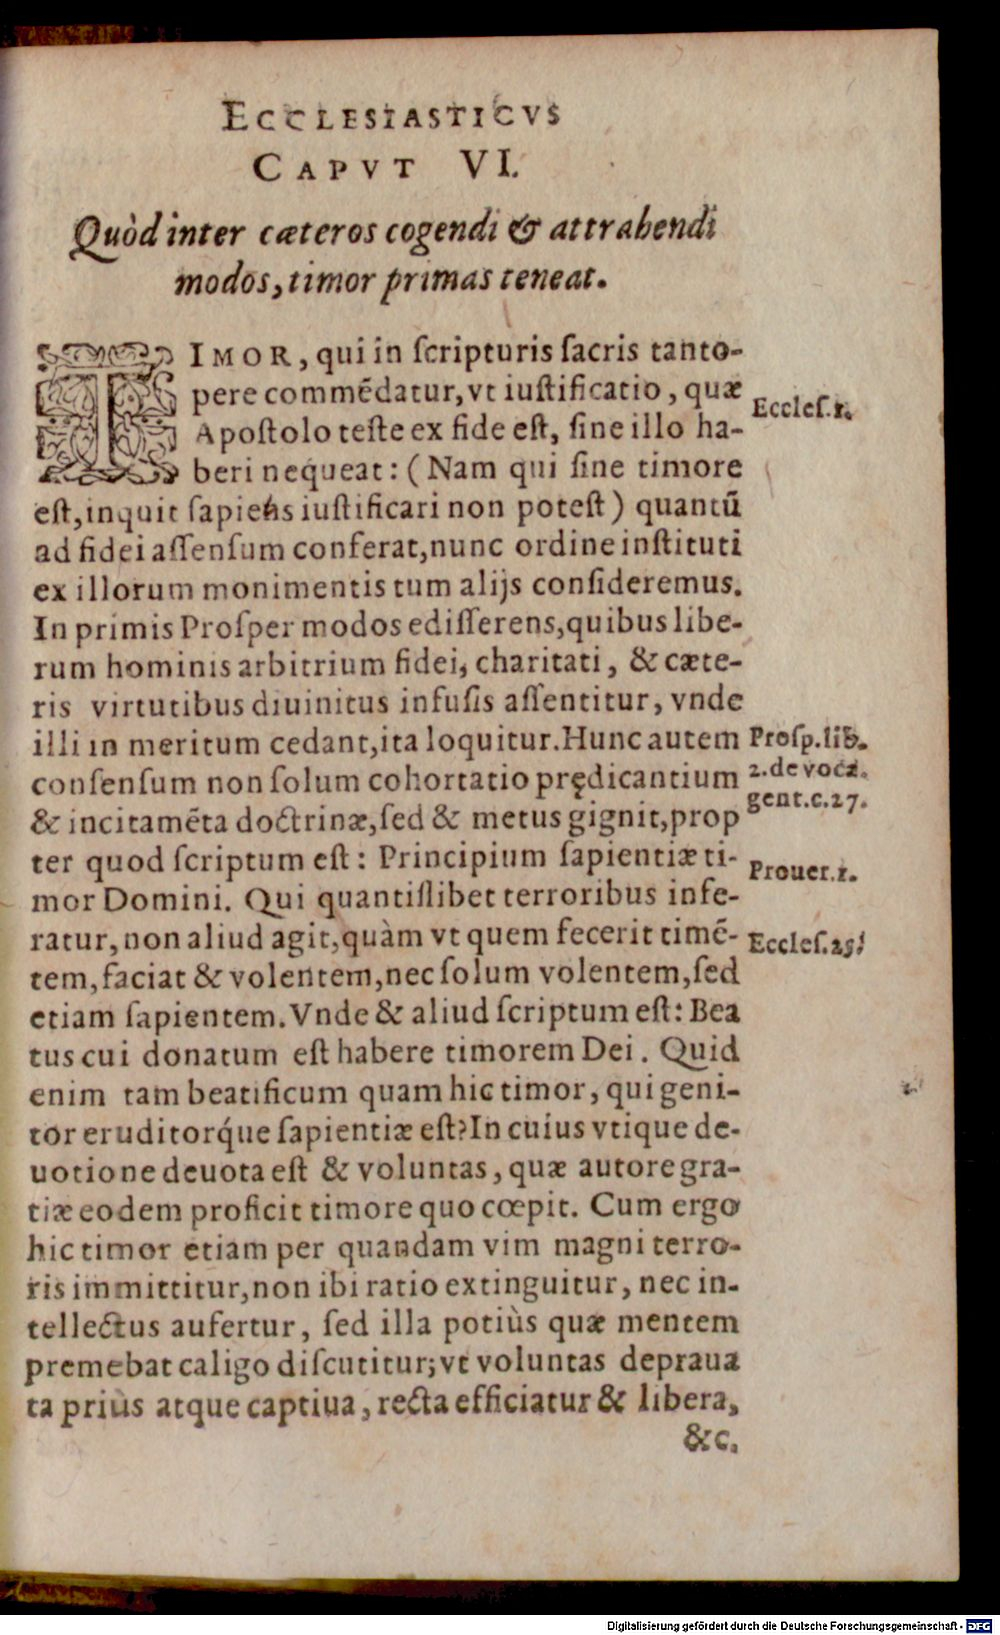 ECCLESIASTICVS
CAPVT VI.
Quòd inter cæteros cogendi & attrahendi
modos, timor primas teneat.
TIMOR, qui in ſcripturis ſacris tanto-
pere commẽdatur, vt iuſtificatio, quæ
Apoſtolo teſte ex fide eſt, ſine illo ha-
beri nequeat: (Nam qui ſine timore
eſt, inquit ſapiẽs iuſtificari non poteſt) quantũ
ad fidei aſſenſum conferat, nunc ordine inſtituti
ex illorum monimentis tum alijs conſideremus.
In primis Proſper modos edifſerens, quibus libe-
rum hominis arbitrium fidei, charitati, & cæte-
ris virtutibus diuinitus infuſis aſſentitur, vnde
illi in meritum cedant, ita loquitur. Hunc autem
conſenſum non ſolum cohortatio prędicantium
& incitamẽta doctrinæ, ſed & metus gignit, prop
ter quod ſcriptum eſt: Principium ſapientiæ ti-
mor Domini. Qui quantiſlibet terroribus infe-
ratur, non aliud agit, quàm vt quem fecerit timẽ-
tem, faciat & volentem, nec ſolum volentem, ſed
etiam ſapientem. Vnde & aliud ſcriptum eſt: Bea
tus cui donatum eſt habere timorem Dei. Quid
enim tam beatificum quam hic timor, qui geni-
tor eruditorq́ue ſapientiæ eſt? In cuius vtique de-
uotione deuota eſt & voluntas, quæ autore gra-
tiæ eodem proficit timore quo cœpit. Cum ergo
hic timor etiam per quandam vim magni terro-
ris immittitur, non ibi ratio extinguitur, nec in-
tellectus aufertur, ſed illa potiùs quæ mentem
premebat caligo diſcutitur; vt voluntas depraua
ta priùs atque captiua, recta efficiatur & libera,
&c.
Eccleſ. 1.
Proſp. lib.
2. de voca.
gent. c. 27.
Prouer. 1.
Eccleſ. 25.
Digitalisierung gefördert durch die Deutsche Forschungsgemeinschaft - DFG